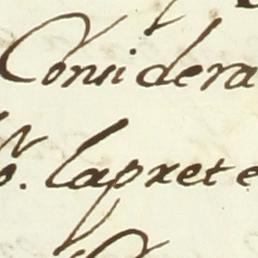 Considera
o. lapret e